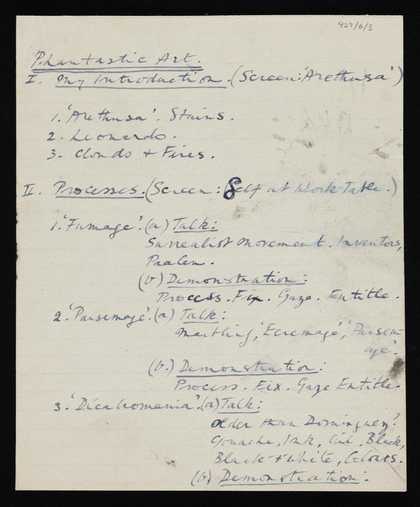 927/6/3
Phantastic Art.
I. My Introduction. (Screen: 'Arethusa')
1. 'Arethusa'. Stains.
2. Leonardo.
3. Clouds + Fires.
II. Processes. (Screen: Self at Work Table.)
1. 'Fumage'. (a) Talk:
Surrealist movement. Inventors,
Paalen.
(b) Demonstration:
Process. Fix. Gaze. Entitle.
2. 'Parsemage'. (a) Talk:
Marbling, 'Ecremage', 'Parsem-
age'.
(b.) Demonstration:
Process. Fix. Gaze Entitle.
3. 'Decalcomania'. (a) Talk:
Older than Dominguez?
Gouache, Ink, Oil, Black,
Black + White, Colours.
(b) Demonstration: